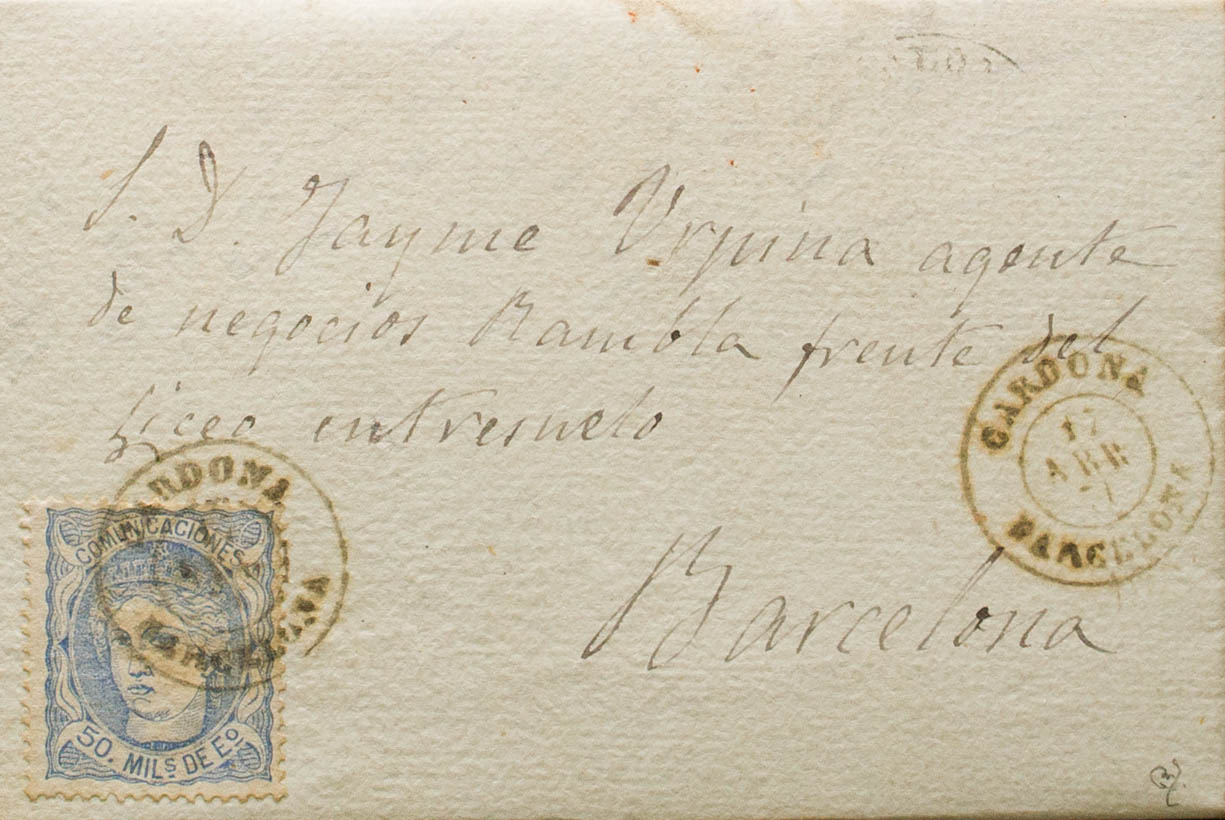 S. D. Jayme Urpina agente
de negocios Rambla frente del
Liceo entresuelo
Barcelona
CARDONA
17
ABR
BARCELONA
CARDONA
BARCELONA
COMUNICACIONES
50. MILS DE Eo